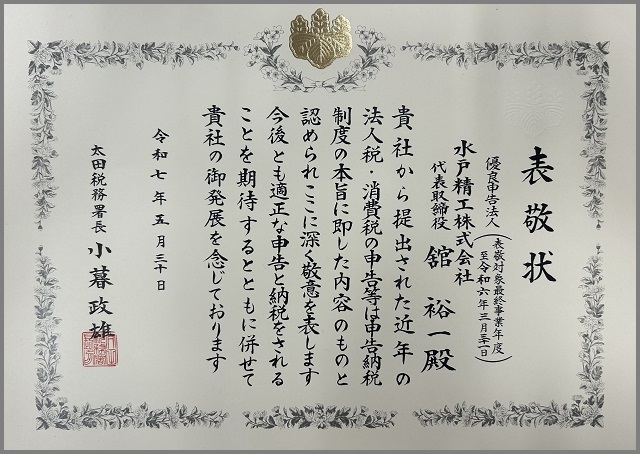 表敬状
優良申告法人(表敬対象最終事業年度 至令和六年三月三一日)
水戸精工株式会社
代表取締役 舘裕一殿
貴社から提出された近年の
法人税・消費税の申告等は申告納税
制度の本旨に即した内容のものと
認められここに深く敬意を表します
今後とも適正な申告と納税をされる
ことを期待するとともに併せて
貴社の御発展を念じております
令和七年五月三十日
太田税務署長 小暮政雄